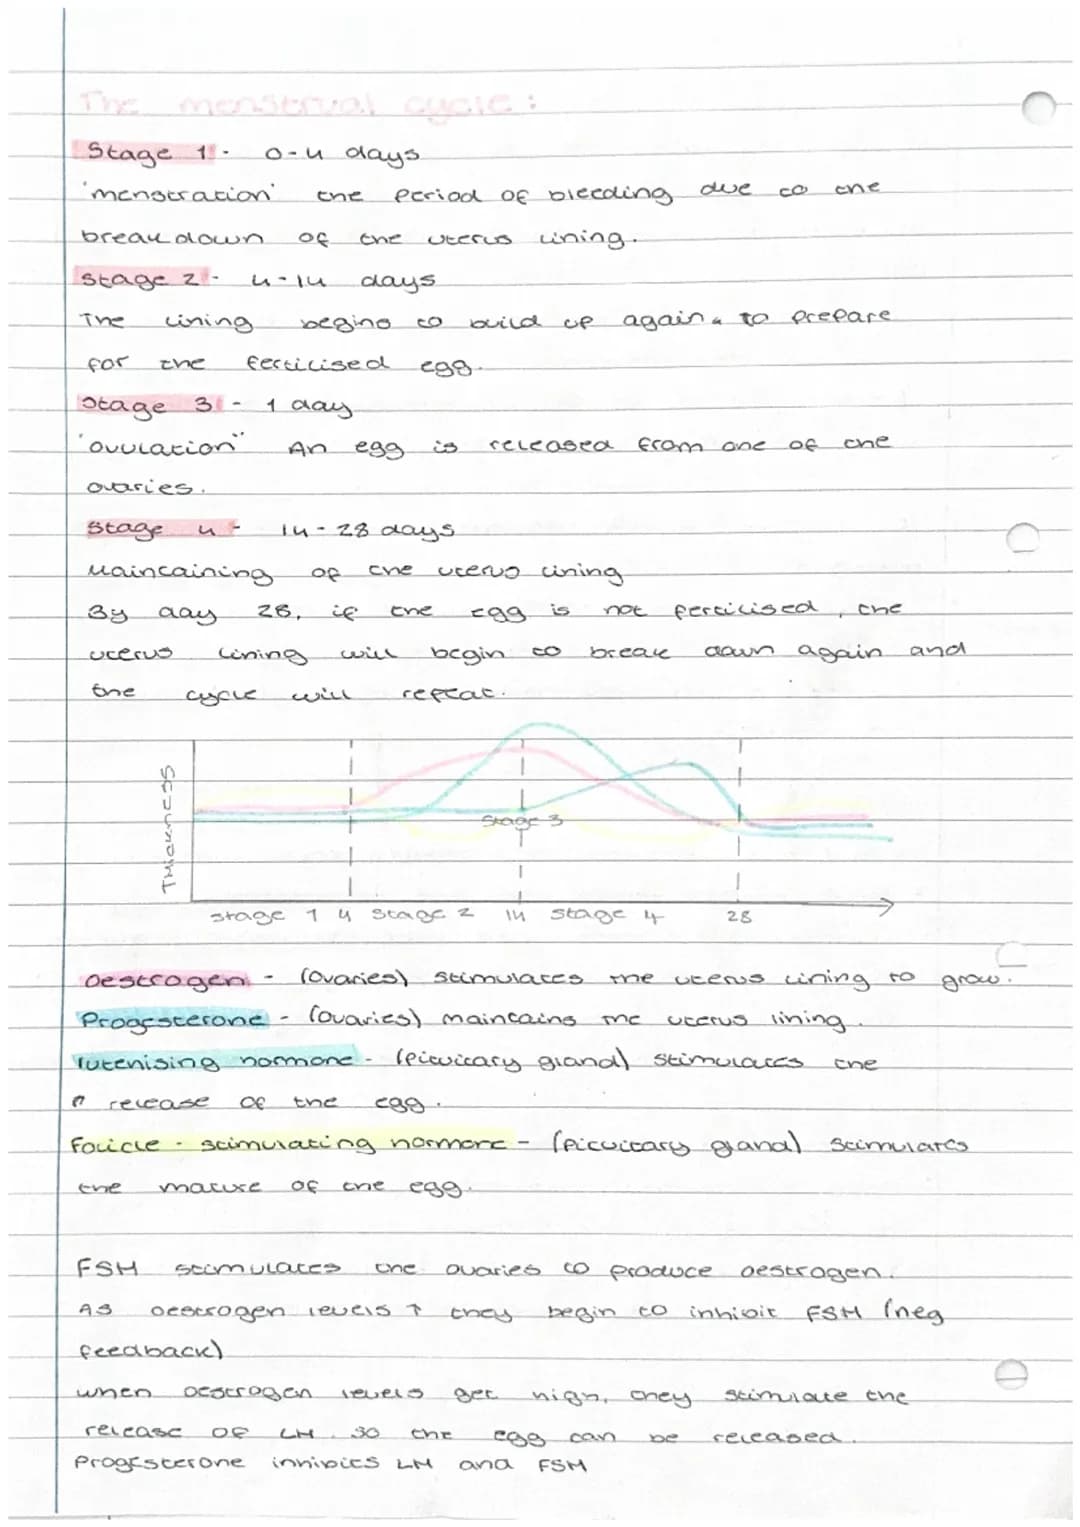 The menstrual cycle:
Stage 1 - 0-4 days
'menstration' the period of bleeding due to the
breakdown of the uterus lining.
Stage 2 - 4-14 days
The lining begins to build up again, to prepare
for the fertilised egg.
Stage 3 - 1 day
'ovulation" An egg is released from one of the
ovaries.
Stage 4 - 14-28 days
Maintaining of the uterus lining
By day 28, if the egg is not fertilised, the
uterus lining will begin to break down again and
the cycle will repeat.
Thickness
Stage 3
stage 1 4 stage 2 14 stage 4 28
Oestrogen - (Ovaries) stimulates the uterus lining to grow.
Progesterone - (ovaries) maintains the uterus lining.
lutenising hormone - (pituitary gland) stimulates the
release of the egg.
Follcle - stimulating hormone - (pituitary gland) stimulates
the mature of the egg.
FSH stimulates the ovaries to produce oestrogen.
As oestrogen levels ↑ they begin to inhibit FSH (neg
feedback)
when oestrogen levels get high, they stimulate the
release of LH. so the egg can be released.
Progesterone inhibits LH and FSH